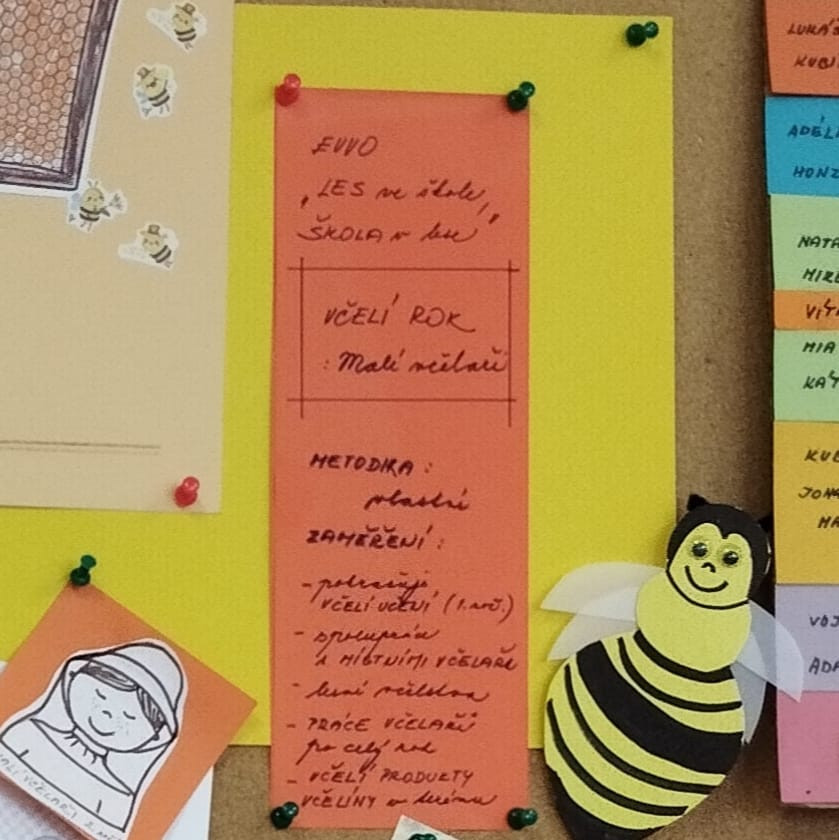 EVVO
„LES ve škole,
ŠKOLA v lese"
VČELÍ ROK
: Malí včelaři
METODIKA :
vlastní
ZAMĚŘENÍ :
- pokračuje
VČELÍ UČENÍ (1. roč.)
- spolupráce
s MÍSTNÍMI VČELAŘI
- lesní včelstva
- PRÁCE VČELAŘŮ
po celý rok
- VČELÍ PRODUKTY
VČELÍNY v terénu
LUKÁŠ
KUBÍ
ADÉL
HONZ
NATA
MIR
VÍT
MIA
KA
KUB
JON
MA
VOJ
ADA